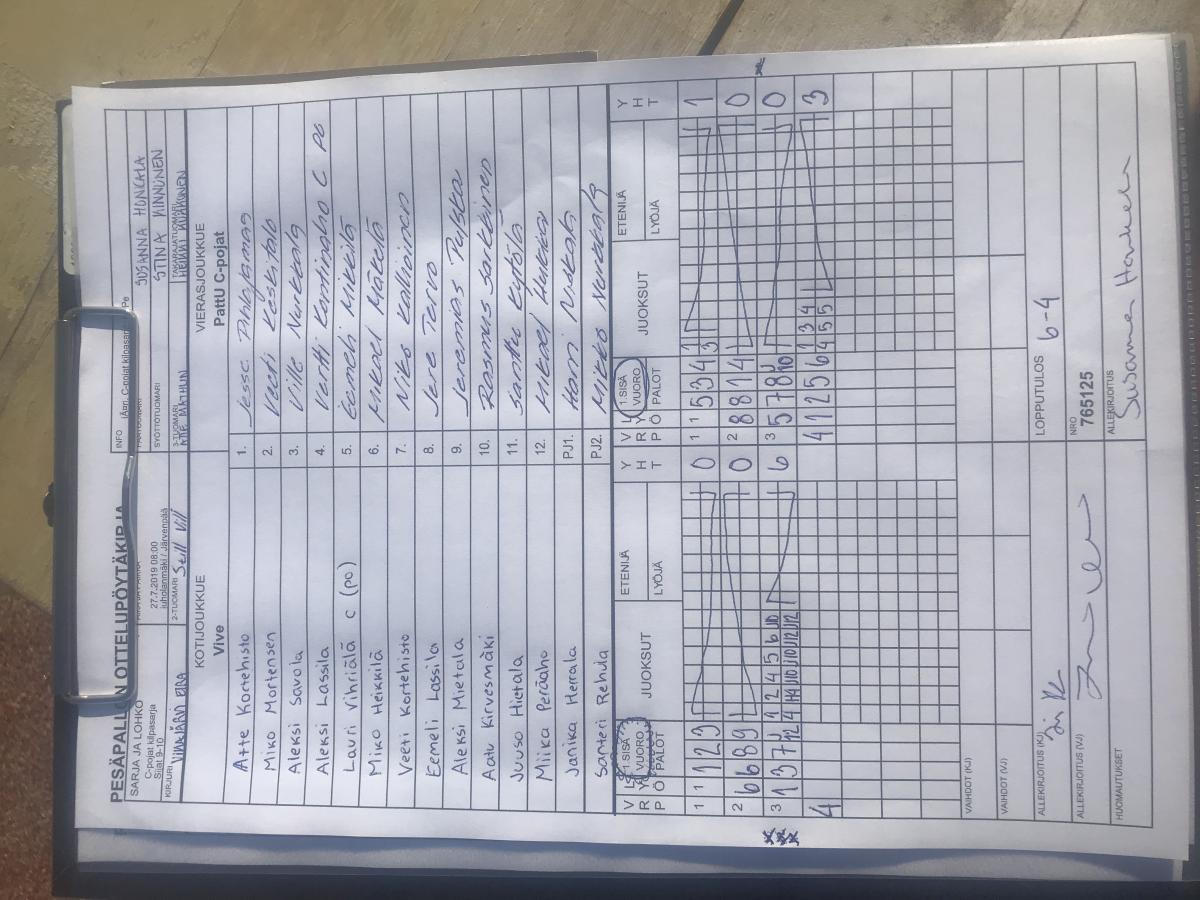 PESÄPALLON OTTELUPÖYTÄKIRJA
SARJA JA LOHKO
C-pojat kilpasarja
Sijat 9-10
27.7.2019 08:00
/ Järvenpää
INFO
C-pojat kilpasarja
SUSANNA HONKALA
SYÖTTÖTUOMARI
STINA KINNUNEN
KIRJURI
2-TUOMARI
3-TUOMARI
TAKARAJATUOMARI
KOTIJOUKKUE
Vive
VIERASJOUKKUE
PattU C-pojat
Atte Kortehisto 1.
Miko Mortensen 2. Veeti Keskitalo
Aleksi Savola 3. Ville Nurkkala
Aleksi Lassila 4. Vertti Kontinaho C po
Lauri Vihriälä c (po) 5. Eemeli Mikkilä
Miko Heikkilä 6. Mikael Mäkelä
Veeti Kortehisto 7. Niko Kallioinen
Eemeli Lassila 8. Jere Tervo
Aleksi Mietala 9. Jeremias
Aatu Kirvesmäki 10. Rasmus Sarkkinen
Juuso Hietala 11. Santtu Kytölä
Miika Peräaho 12. Mikael
Janika Herrala PJ1. Harri
Santeri Rehula PJ2. Mikko Nurkkala
V R P L Y Ö 1.SISÄ VUORO PALOT JUOKSUT ETENIJÄ LYÖJÄ Y H T
V R P L Y Ö 1.SISÄ VUORO PALOT JUOKSUT ETENIJÄ LYÖJÄ Y H T
1 1 1 2 3 0
1 1 5 3 4 1 3 1
2 6 6 8 9 0
2 8 8 1 4 0
3 1 3 7 1 2 4 5 6 6
3 5 7 8 10 0
4
4 1 2 5 6 1 3 4 4 5 5 3
VAIHDOT (KJ)
VAIHDOT (VJ)
ALLEKIRJOITUS (KJ)
LOPPUTULOS 6-4
ALLEKIRJOITUS (VJ)
NRO
765125
HUOMAUTUKSET
ALLEKIRJOITUS
Susanna Honkala